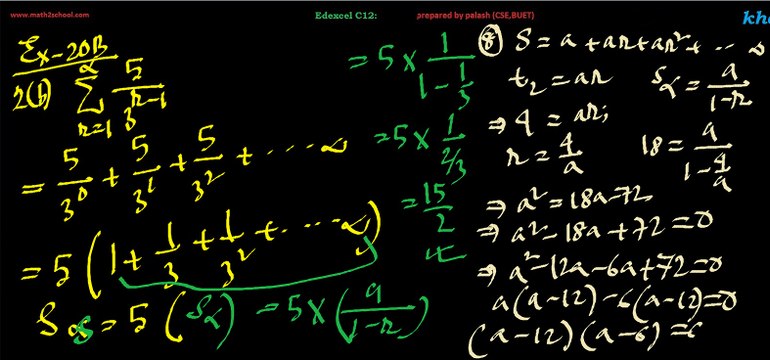 www.math2school.com
Edexcel C12:
prepared by palash (CSE,BUET)
Ex-20B
2(b) ∞Σn=1 5/3^(n-1)
= 5/3⁰ + 5/3¹ + 5/3² + ···· ∞
= 5 (1 + 1/3 + 1/3² + ···· ∞)
S∞ = 5 (S∞) = 5 × (a/(1-r))
= 5 × 1/(1 - 1/3)
= 5 × 1/(2/3)
= 15/2
8 S = a + ar + ar² + ···· ∞
t₂ = ar S∞ = a/(1-r)
⇒ 4 = ar;
r = 4/a 18 = a/(1 - 4/a)
⇒ a² = 18a - 72
⇒ a² - 18a + 72 = 0
⇒ a² - 12a - 6a + 72 = 0
a(a-12) - 6(a-12) = 0
(a-12)(a-6) = 0